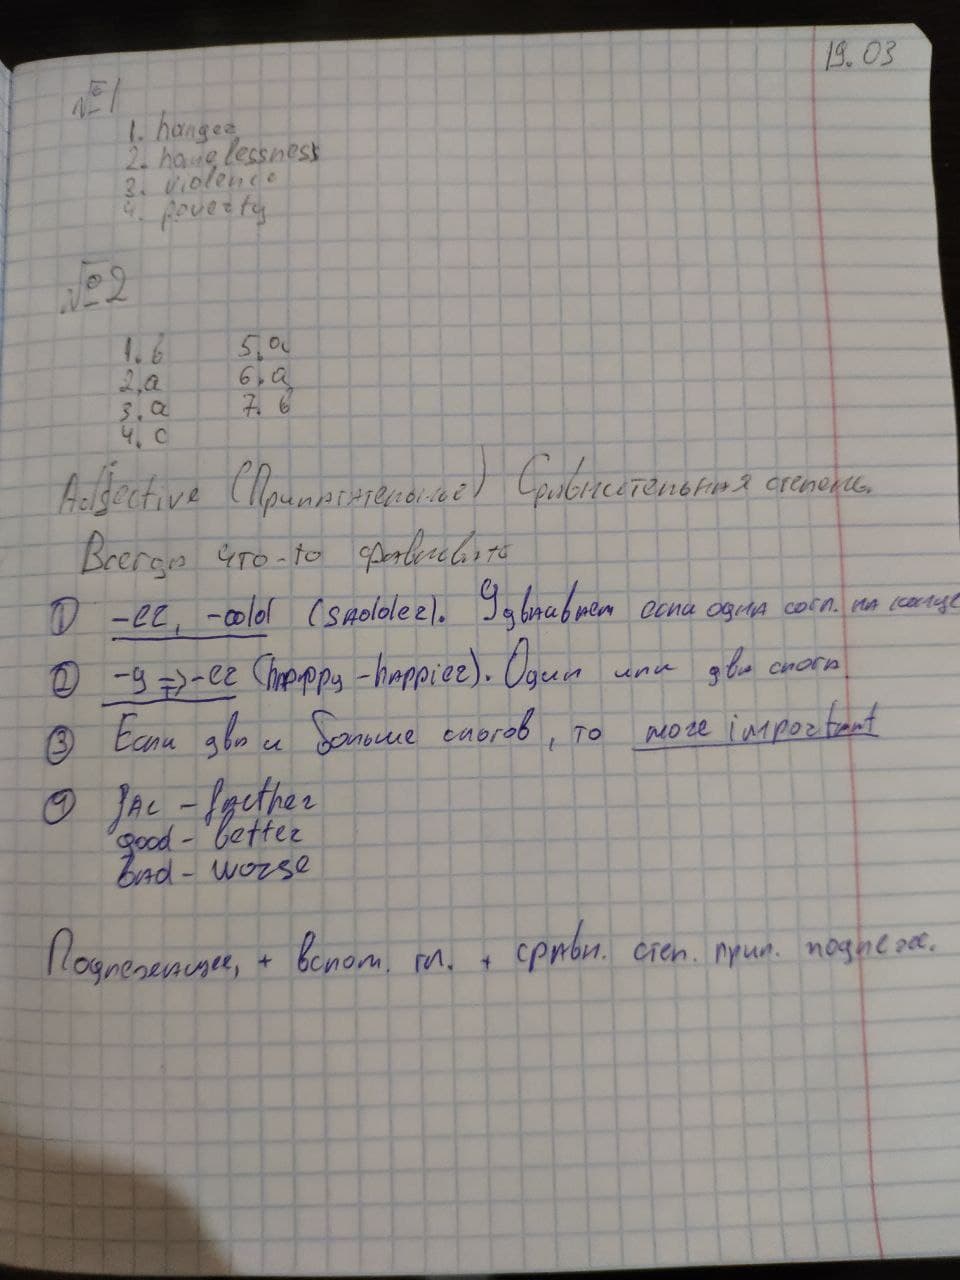 19.03
№1
1. hanger
2. homelessness
3. violence
4. poverty
№2
1. b 5. a
2. a 6. a
3. a 7. b
4. c
Adjective (Прилагательное) Сравнительная степень.
Всегда что-то
① -er, -add (sadder). Удваивает если одна согл. на конце
② -y => -er (happy - happier). Один или два слога
③ Если два и больше слогов, то more important
④ far - farther
good - better
bad - worse
Подлежащее, + вспом. гл. + сравн. степ. прил. подлеж.